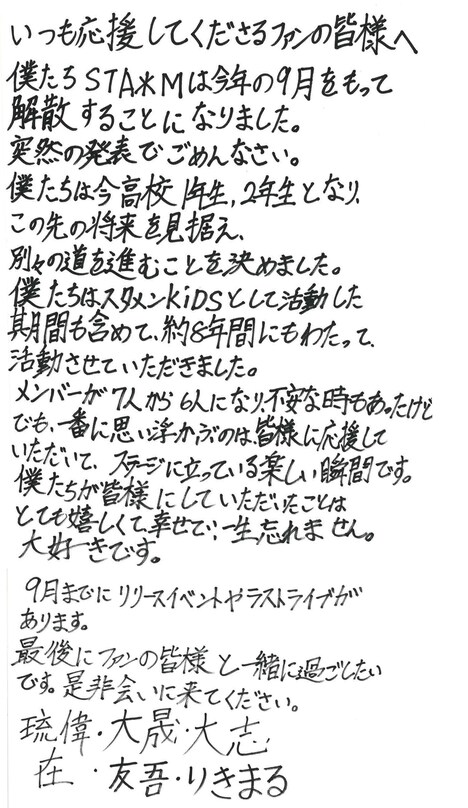 いつも応援してくださるファンの皆様へ
僕たちSTA*Mは今年の9月をもって
解散することになりました。
突然の発表でごめんなさい。
僕たちは今高校1年生,2年生となり、
この先の将来を見据え、
別々の道を進むことを決めました。
僕たちはスタメンKiDSとして活動した
期間も含めて、約8年間にもわたって、
活動させていただきました。
メンバーが7人から6人になり、不安な時もあったけど
でも、一番に思い浮かぶのは、皆様に応援して
いただいて、ステージに立っている楽しい瞬間です。
僕たちが皆様にしていただいたことは
とても嬉しくて、幸せで、一生忘れません。
大好きです。
9月までにリリースイベントやラストライブが
あります。
最後にファンの皆様と一緒に過ごしたい
です。是非会いに来てください。
琉偉・大晟・大志
在・友吾・りきまる